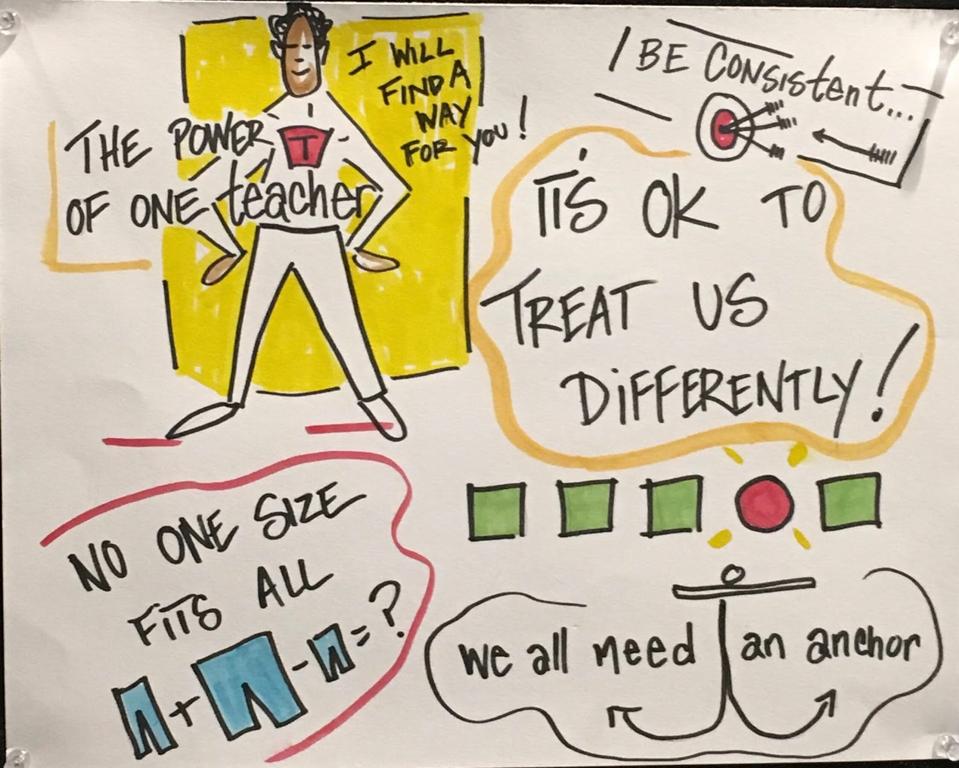 THE POWER
OF ONE teacher
T
I WILL
FIND A
WAY
FOR YOU!
BE CONSistent...
IT'S OK TO
TREAT US
DiFFERENTLY!
NO ONE SIZE
FITS ALL
+ - = ?
we all need an anchor